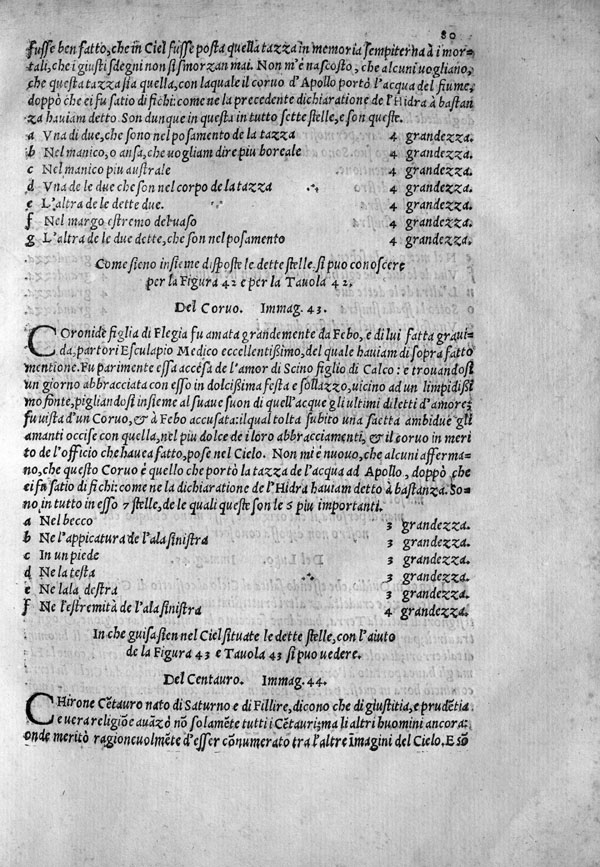 80
fusse ben fatto, che in Ciel fusse posta quella tazza in memoria sempiterna à i mor-
tali, che i giusti sdegni non si smorzan mai. Non m'è nascosto, che alcuni uogliano,
che questa tazza sia quella, con laquale il coruo d'Apollo portò l'acqua del fiume,
doppò che ei fu satio di fichi: come ne la precedente dichiaratione de l'Hidra à bastan
za hauiam detto. Son dunque in questa in tutto sette stelle, e son queste.
a Vna di due, che sono nel posamento de la tazza 4 grandezza.
b Nel manico, o ansa, che uogliam dire più boreale 4 grandezza.
c Nel manico piu australe 4 grandezza.
d Vna de le due che son nel corpo de la tazza 4 grandezza.
e L'altra de le dette due. 4 grandezza.
f Nel margo estremo del uaso 4 grandezza.
g L'altra de le due dette, che son nel posamento 4 grandezza.
Come sieno insieme disposte le dette stelle, si puo conoscere
per la Figura 42 e per la Tauola 42.
Del Coruo. Immag. 43.
CORonide figlia di Flegia fu amata grandemente da Febo, e di lui fatta graui-
da, partorì Esculapio Medico eccellentißimo, del quale hauiam di sopra fatto
mentione. Fu parimente essa accesa de l'amor di Scino figlio di Calco: e trouandosi
un giorno abbracciata con esso in dolcißima festa e sollazzo, uicino ad un limpidißi
mo fonte, pigliandosi insieme al suaue suon di quell'acque gli ultimi diletti d'amore;
fu uista d'un Coruo, & à Febo accusata: il qual tolta subito una saetta ambidue gli
amanti occise con quella, nel più dolce de i loro abbracciamenti, & il coruo in meri
to de l'officio che hauea fatto, pose nel Cielo. Non mi è nuouo, che alcuni afferma-
no, che questo Coruo è quello che portò la tazza de l'acqua ad Apollo, doppò che
ei fu satio di fichi: come ne la dichiaratione de l'Hidra hauiam detto à bastanza. So-
no, in tutto in esso 7 stelle, de le quali queste son le 6 piu importanti.
a Nel becco 3 grandezza.
b Ne l'appicatura de l'ala sinistra 3 grandezza.
c In un piede 3 grandezza.
d Ne la testa 3 grandezza.
e Ne lala destra 3 grandezza.
f Ne l'estremità de l'ala sinistra 4 grandezza.
In che guisa sien nel Ciel situate le dette stelle, con l'aiuto
de la Figura 43 e Tauola 43 si puo uedere.
Del Centauro. Immag. 44.
CHirone Cẽtauro nato di Saturno e di Fillire, dicono che di giustitia, e prudẽtia
e uera religiõe auãzò nõ solamẽte tutti i Cẽtauri; ma li altri huomini ancora:
onde meritò ragioneuolmẽte d'esser cõnumerato tra l'altre ĩmagini del Cielo. E sõ